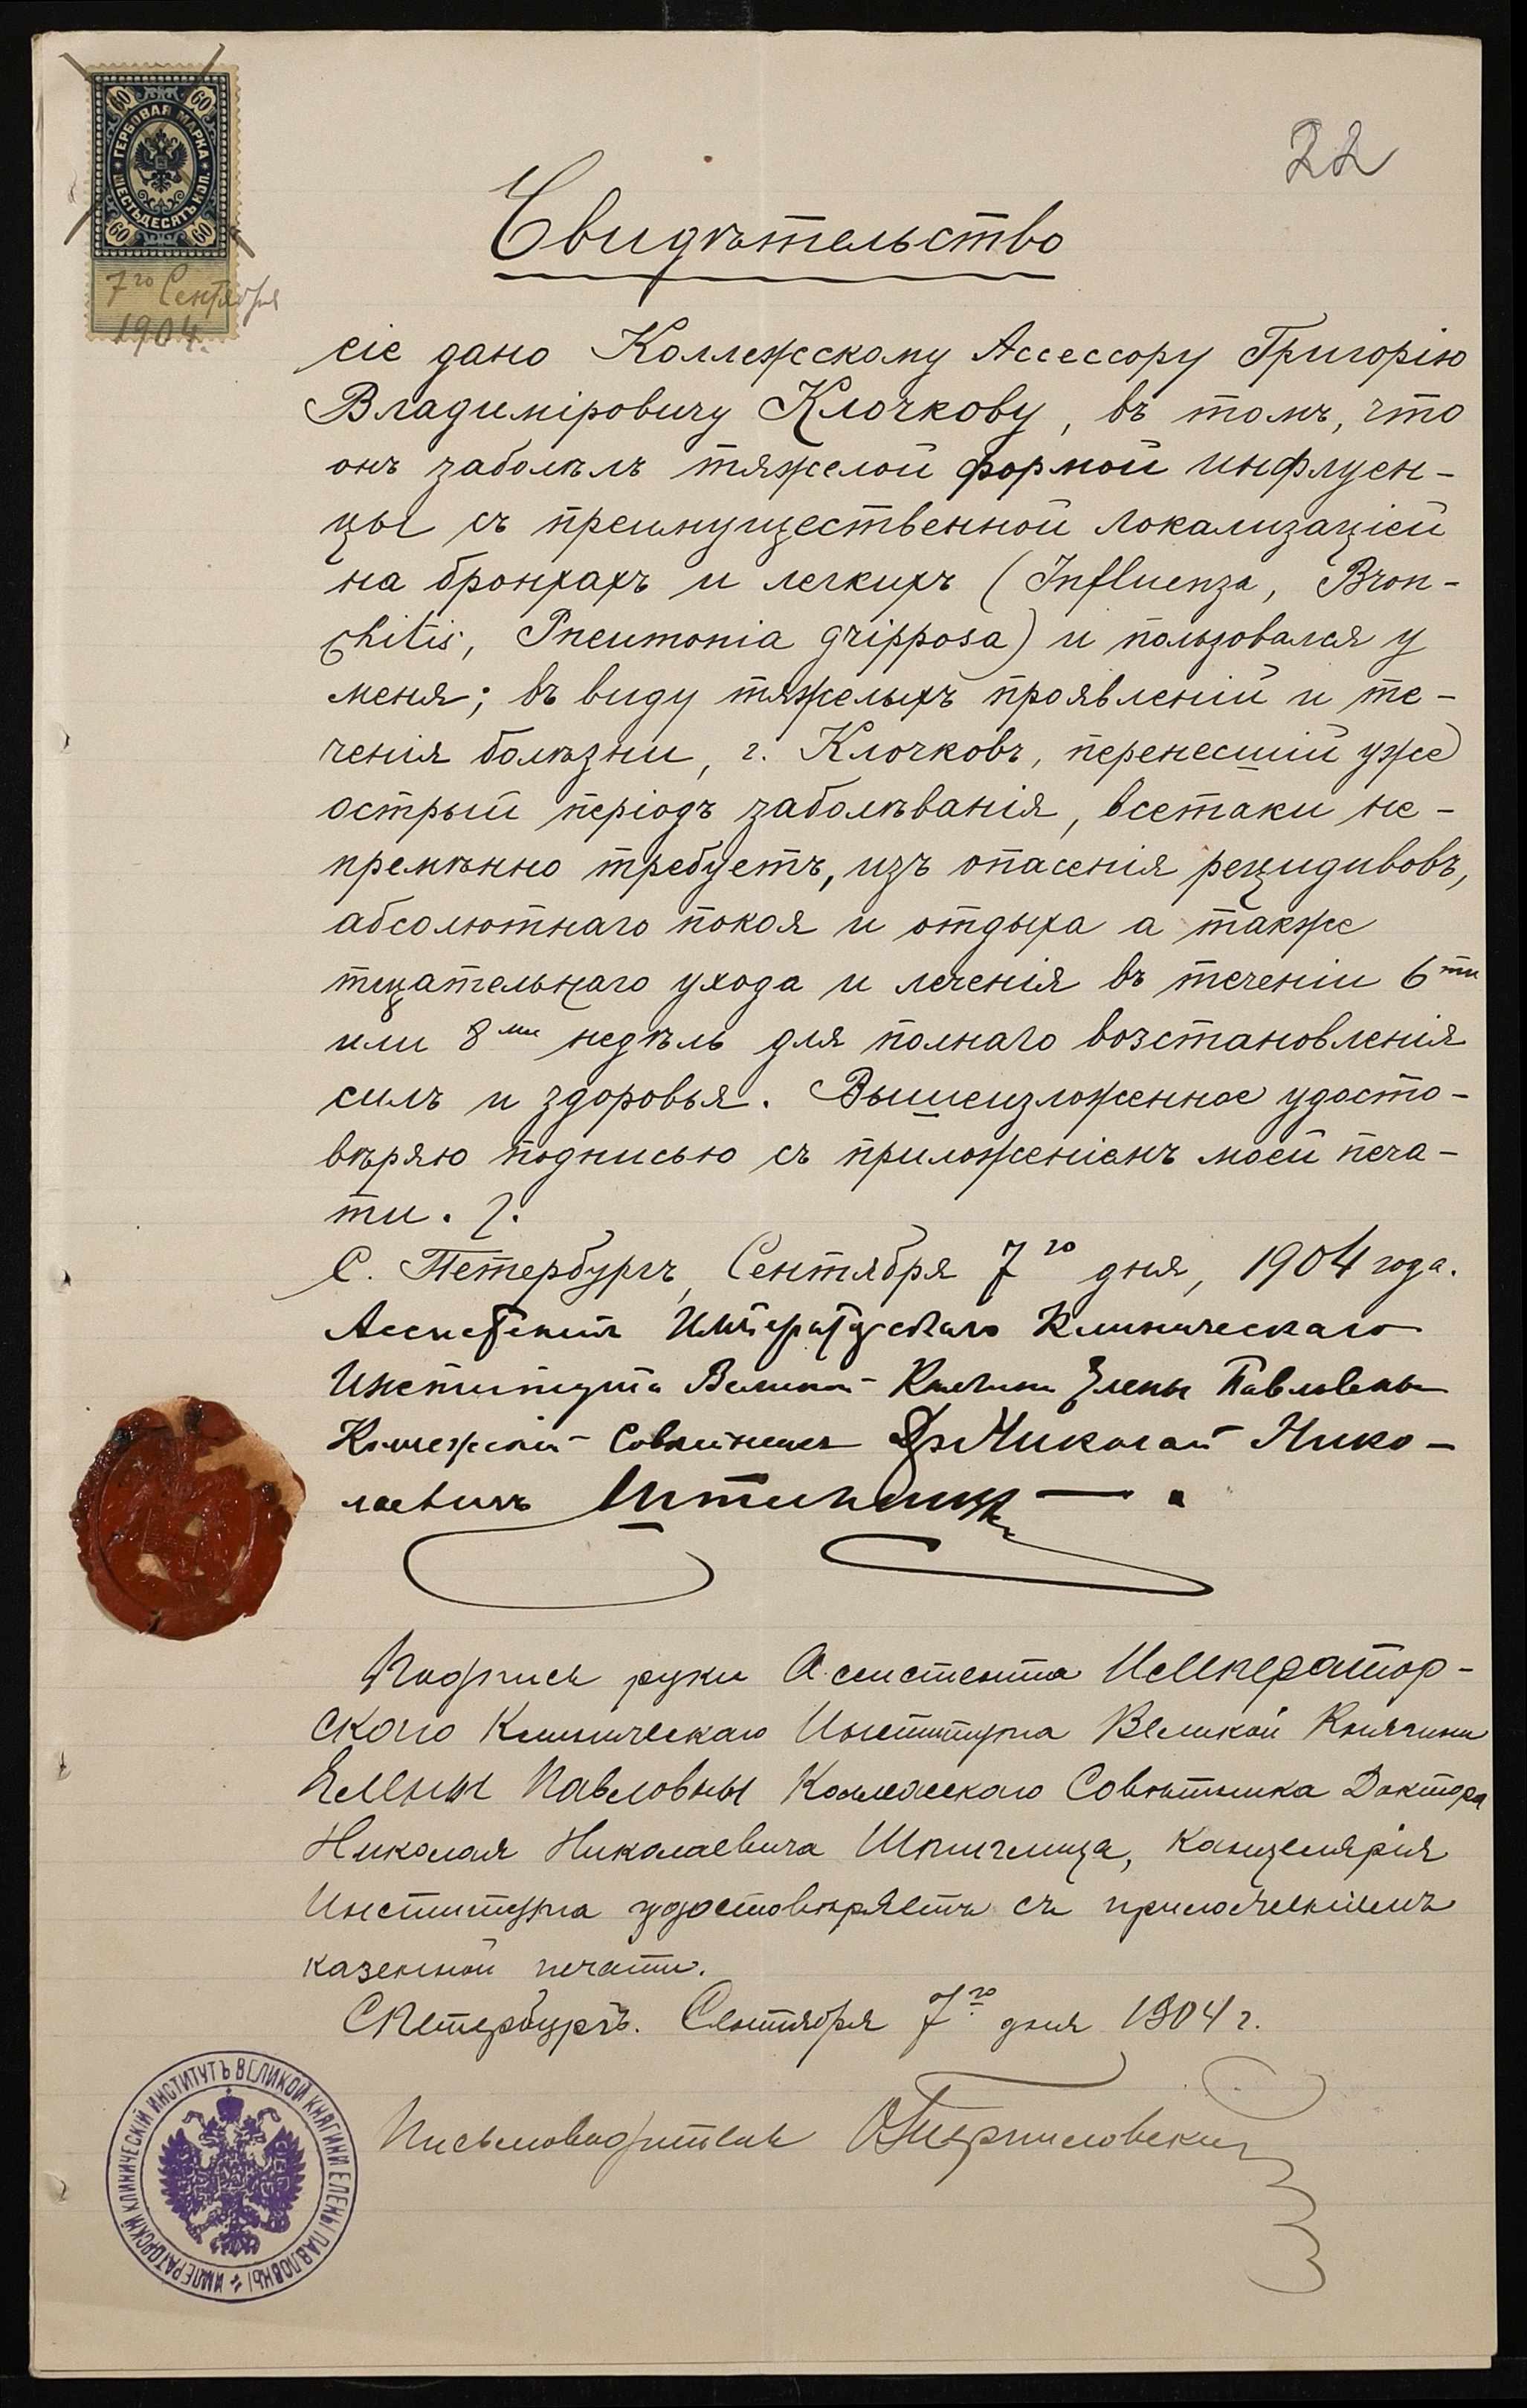 22
60 60
ГЕРБОВАЯ МАРКА
ШЕСТЬДЕСЯТЪ КОП.
60 60
7го Сентября
1904.
Свидѣтельство
сіе дано Коллежскому Ассессору Григорію
Владиміровичу Клочкову, въ томъ, что
онъ заболѣлъ тяжелой формой инфлуен-
цы съ преимущественной локализаціей
на бронхахъ и легкихъ (Influenza, Bron-
chitis, Pneumonia gripposa) и пользовался у
меня; въ виду тяжелыхъ проявленій и те-
ченія болѣзни, г. Клочковъ, перенесшій уже
острый періодъ заболѣванія, всетаки не-
премѣнно требуетъ, изъ опасенія рецидивовъ,
абсолютнаго покоя и отдыха а также
тщательнаго ухода и леченія въ теченіи 6ти
или 8ми недѣль для полнаго возстановленія
силъ и здоровья. Вышеизложенное удосто-
вѣряю подписью съ приложеніемъ моей печа-
ти.
С. Петербургъ, Сентября 7го дня, 1904 года.
Ассистентъ Императорскаго Клиническаго
Института Великой Княгини Елены Павловны
Коллежскій Совѣтникъ Др Николай Нико-
лаевичъ
Подпись руки Ассистента Император-
скаго Клиническаго Института Великой Княгини
Елены Павловны Коллежскаго Совѣтника Доктора
Николая Николаевича Шпиглица, Канцелярія
Института удостовѣряетъ съ приложеніемъ
казенной печати.
СПетербургъ. Сентября 7го дня 1904 г.
Письмоводитель
ИМПЕРАТОРСКІЙ КЛИНИЧЕСКІЙ ИНСТИТУТЪ ВЕЛИКОЙ КНЯГИНИ ЕЛЕНЫ ПАВЛОВНЫ